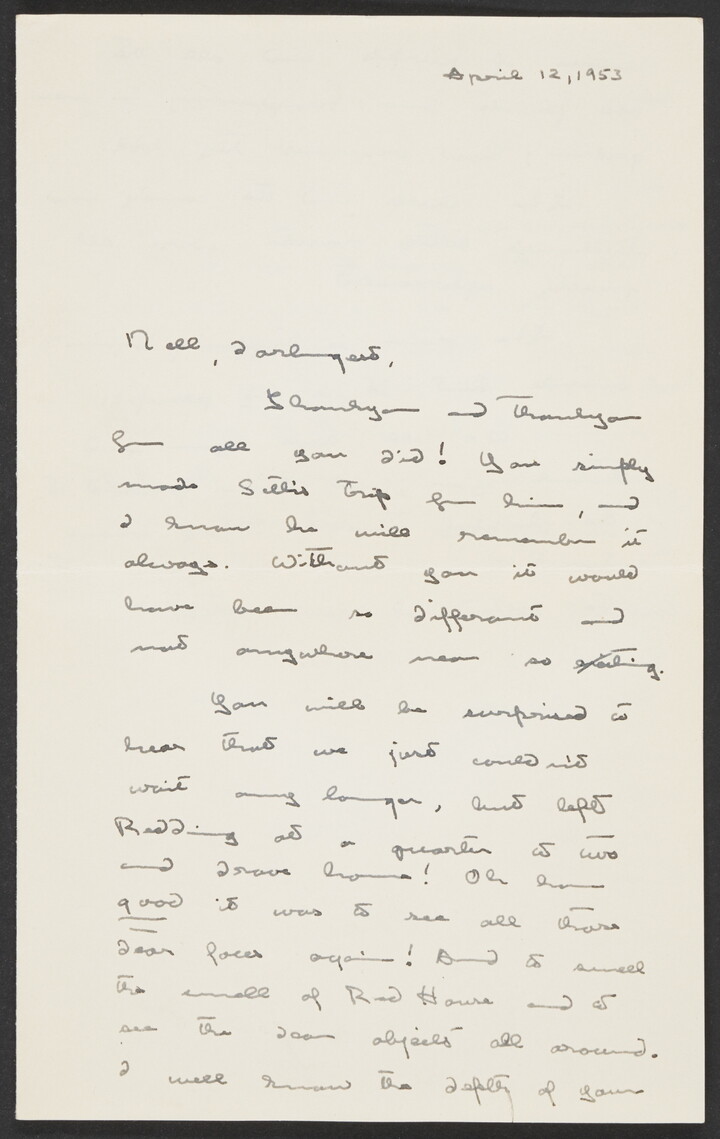 April 12, 1953
Nell, darlingest,
Thankyou and Thankyou
for all you did! You simply
made Setti's Trip for him, and
I know he will remember it
always. Without you it would
have been so different and
not anywhere near so exciting.
You will be surprised to
hear that we just couldn't
wait any longer, but left
Redding at a quarter to two
and drove home! Oh how
good it was to see all those
dear faces again! And to smell
the smell of Red House and to
see the dear objects all around.
I well know the depth of your